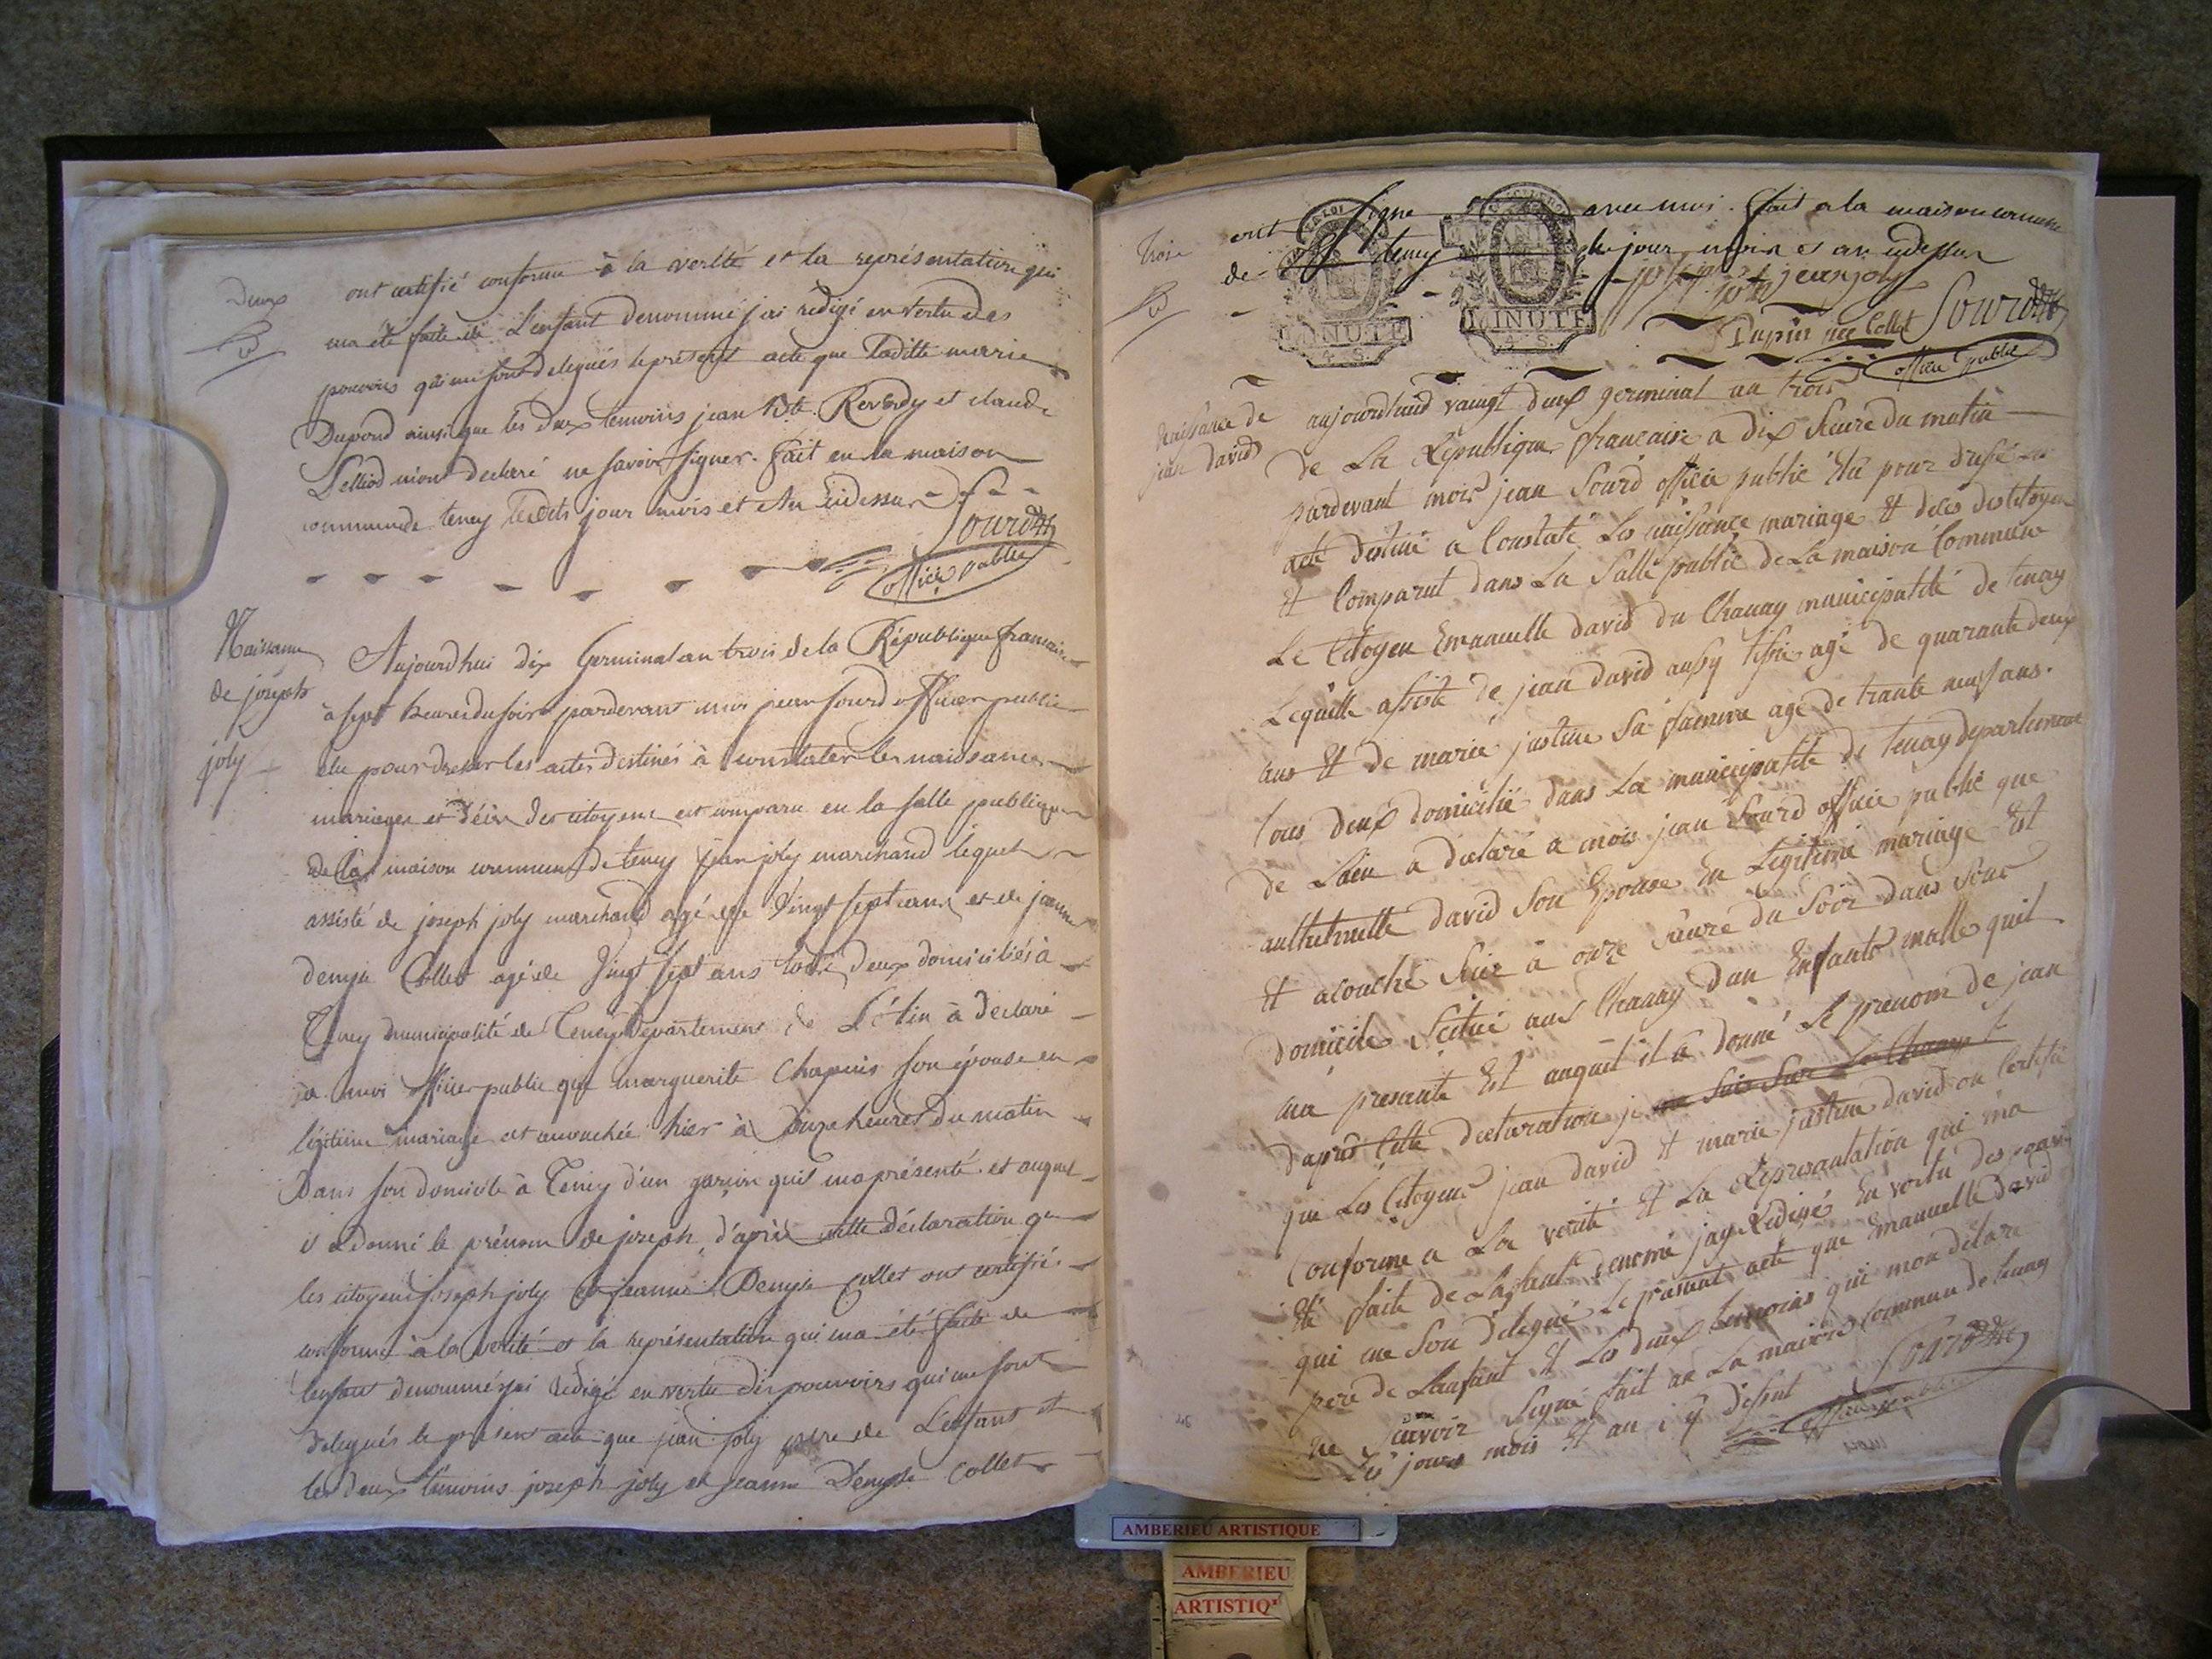 Deux
ont certifié conforme à la verité et la représentation qui
ma été faite de L'enfant denommé j'ai redigé en vertu des
pouvoirs qui me sont delegués le présent acte que Laditte marie
Dupond ainsi que les deux temoins jean Bte Reverdy et claude
m'ont declaré ne savoir signer. fait en la maison
commune de teney lesdits jour mois et An cidessus
Sourd
officié public
Naissance
de joseph
joly
Aujourdhui dix Germinal an trois de la République francaise
à sept heures du soir pardevant moi jean Sourd officier public
élu pour dresser les actes destinés à constater les naissances
mariages et décès des citoyens est comparu en la salle publique
de la maison commune de teney jean joly marchand lequel
assisté de joseph joly marchand agé de Vingt sept ans et de jeanne
denyse Collet agée de Vingt sept ans tous deux domiciliés à
Teney municipalité de Teney Departement de L'Ain à declaré
à moi officier public que marguerite Chapuis son épouse en
légitime mariage est accouchée hier à onze heures du matin
Dans son domicile à Teney d'un garcon quil ma présenté et auquel
il a donné le prénom de joseph, d'après cette déclaration que
les citoyens joseph joly et jeanne Denyse Collet ont certifié
conforme à la verité et la représentation qui ma été faite de
lenfant denommé jai redigé en vertu des pouvoirs qui me sont
delegués le présent acte que jean joly père de L'enfant et
les deux témoins joseph joly et jeanne Denyse Collet
trois
ont signé avec moi. fait a la maison commune
de teney les jour mois et an cidessus
MINUTE
4. S.
MINUTE
4. S.
jean joly
Dupin née Collet Sourd
officié public
Naissance de
jean david
aujourdhuid vaingt deux germinal an trois
de La Republique francaise a dix heure du matin
pardevant mois jean Sourd officié public Elu pour dressé les
acte destiné a Constaté Les naissance mariage Et déces des citoyen
Et Comparut dans La Salle public de La maison Commune
Le Citoyen Emanuelle david du Chanay municipalité de tenay
Lequelle assisté de jean david aussy tissie agé de quarante deux
ans Et de marie justine Sa famme age de trante neuf ans.
tous deux domicilié dans La municipalité de tenay departement
de Lain a déclaré a mois jean Sourd officié public que
david Son Epouse En Legitime mariage Est
Et acouché hier à onze heure du Soir dans Son
domicile Scitué aux Chanay dun Enfants malle quil
ma presanté Est auquel il a donné Le prenom de jean
dapres Cette declaration je me suis sur Le Champ
que Les Citoyens jean david Et marie justine david on Certifié
Conforme a La verité Et La Representation qui ma
Eté faite de Lanfant denomé jay Redigé En vertu des pouvoir
qui me Son délegué Le presant acte que Emanuelle david
pere de Lanfant Et Les deux temoins qui mon déclaré
ne savoir Signé fait ae La maison Commune de tenay
Les jours mois Et an i cy dessut
Sourd
officié public
AMBERIEU ARTISTIQUE
AMBERIEU
ARTISTIQ